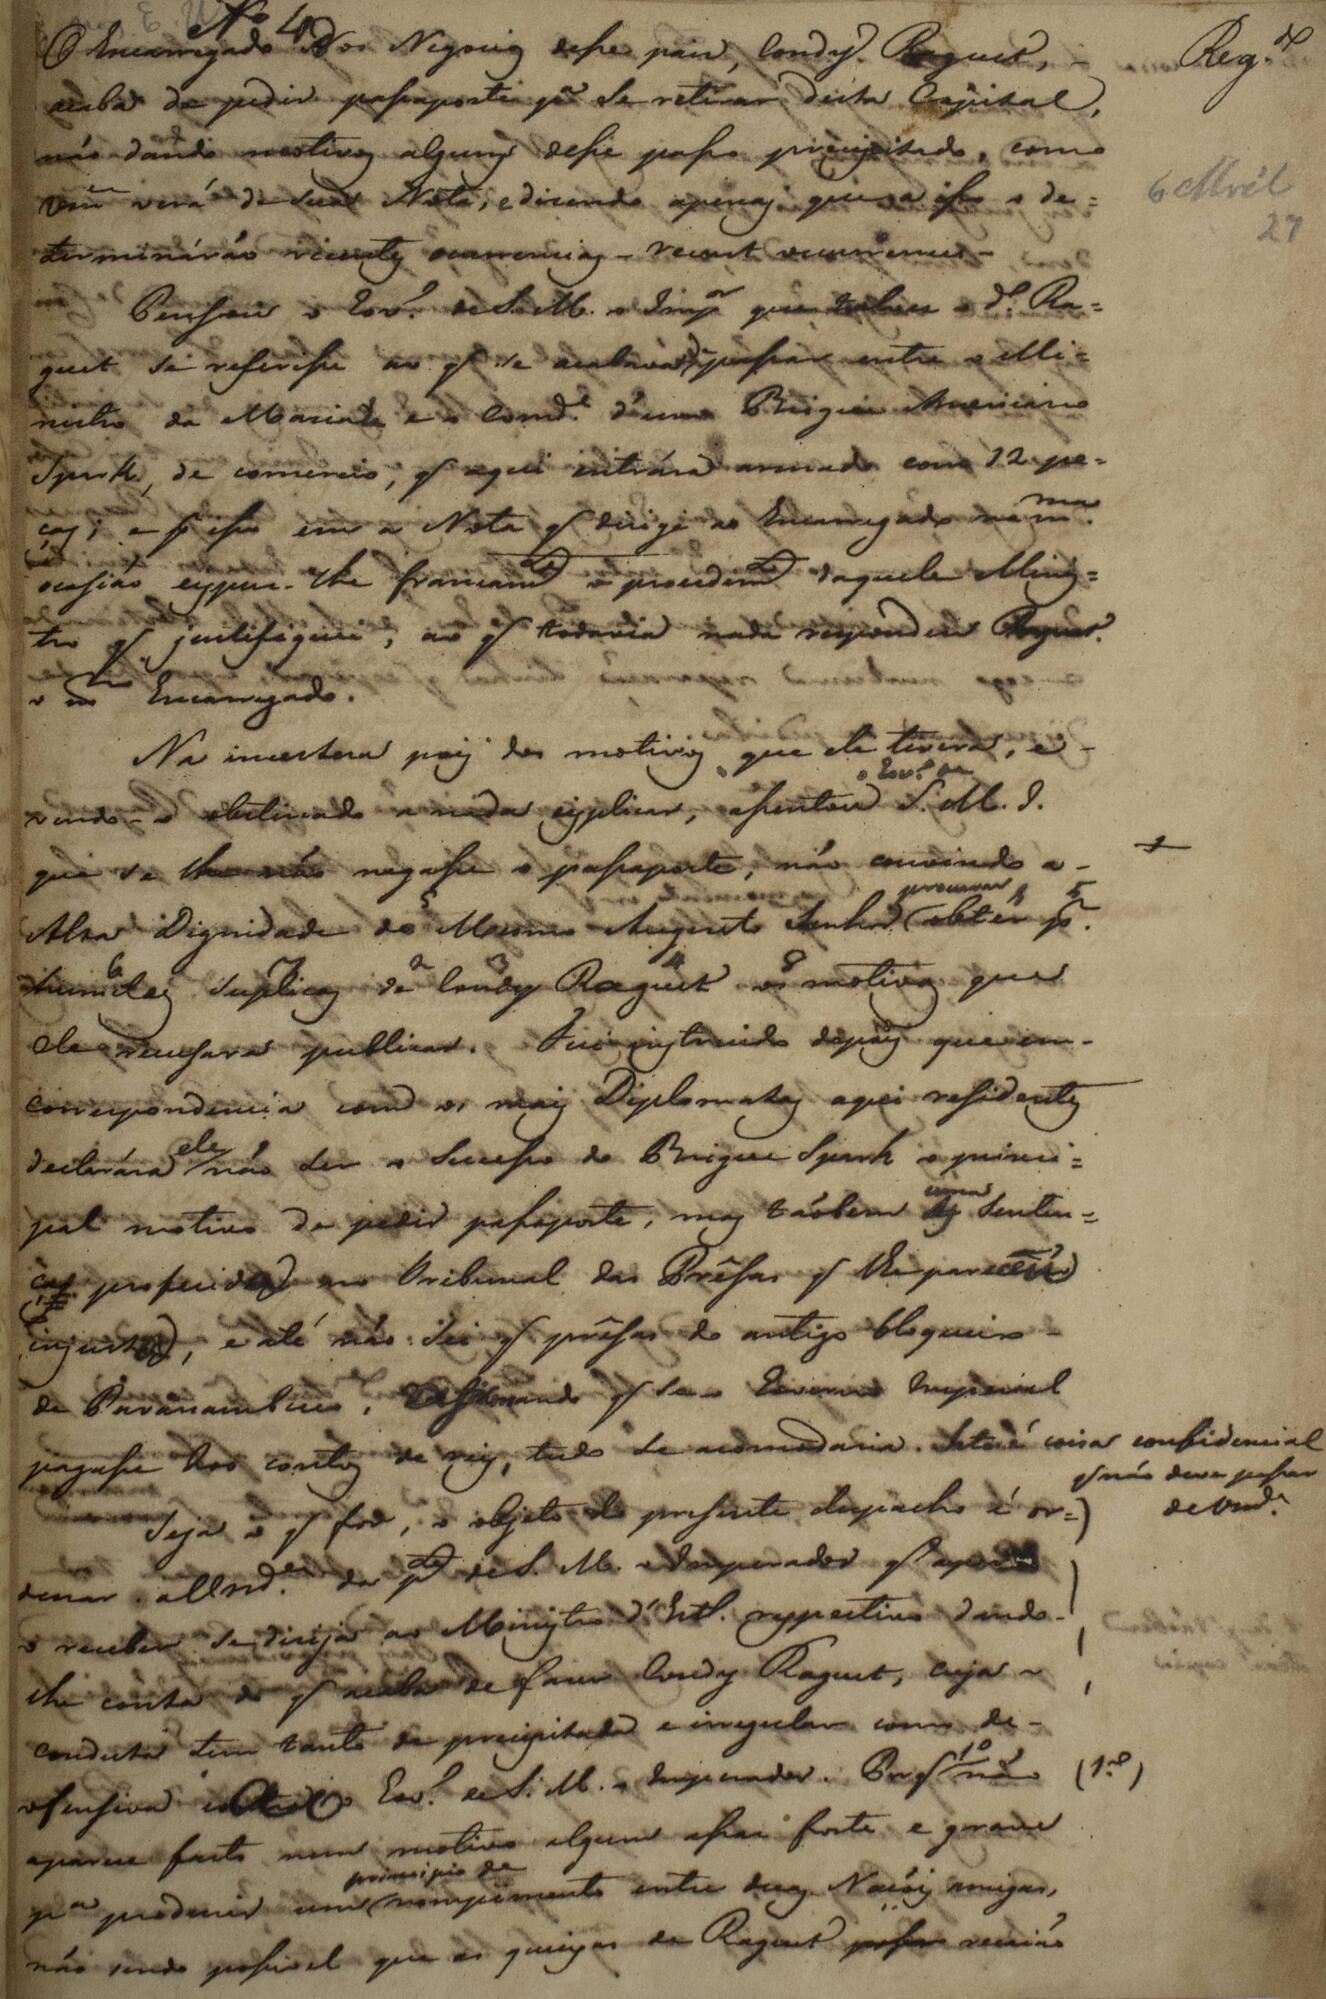 Nº 4
O Encarregado dos Negocios desse paiz, Condy Raguet, Reg.do
acaba de pedir passaporte pª se retirar desta Capital,
não dando motivos alguns desse passo precipitado, como
Vmce verá da sua Nota, e dizendo apenas que a isso o de=
terminárão recentes ocurrencias - recent occurrences -
6 Abril
27
Pensou o Gov.º de S. M. o Impor que talvez o dº Ra=
guet se referisse ao q se acabava de passar entre o Mi=
nistro da Marinha e o Comde d'um Brigue Americano
Spark, de comercio, q aqui entrára armado com 12 pe=
ças; e p isso em a Nota q dirigi ao Encarregado na mma
ocasião expuz-lhe francamte o procedimto daquele Minis=
tro q justifiquei; ao q todavia nada respondeu Raguet.
o mmo Encarregado.
Na incerteza pois dos motivos que ele tivera, e
vendo-o obstinado a nada explicar, assentou o Gov.º de S. M. I.
que se lhe não negasse o passaporte, não convindo a
Alta Dignidade do Mesmo Augusto Senhor procurar obter pr.
humildes suplicas de Condy Raguet os motivos que
ele recusara publicar. Fui instruido depois que em
correspondencia com os mais Diplomatas aqui residentes
declarára ele não ser o sucesso do Brigue Spark o princi=
pal motivo de pedir passaporte, mas tãobem uma Senten=
ças proferidas no Tribunal das Prêsas q lhe pareceu
injustas, e até não sei q prêsas do antigo bloqueio
de Paranambuco, q se o Governo Imperial
pagasse contos de reis, tudo se acomodaria. Isto é coisa confidencial
q não deve passar
de Vmce.
Seja o q for, o objeto do presente despacho é or=
denar a Vmce da pte de S. M. o Imperador q apenas
o receber se dirija ao Ministro d'Est. respectivo dando-
lhe conta do q acaba de fazer Condy Raguet, cuja
conduta tem tanto de precipitada e irregular como de
ofensiva contra o Gov.º de S. M. o Imperador. Porq 1º não (1.º)
aparece facto nem motivo algum assaz forte e grave
pª produzir um principio de rompimento entre duas Naçóis amigas,
não sendo possivel que as queixas de Raguet